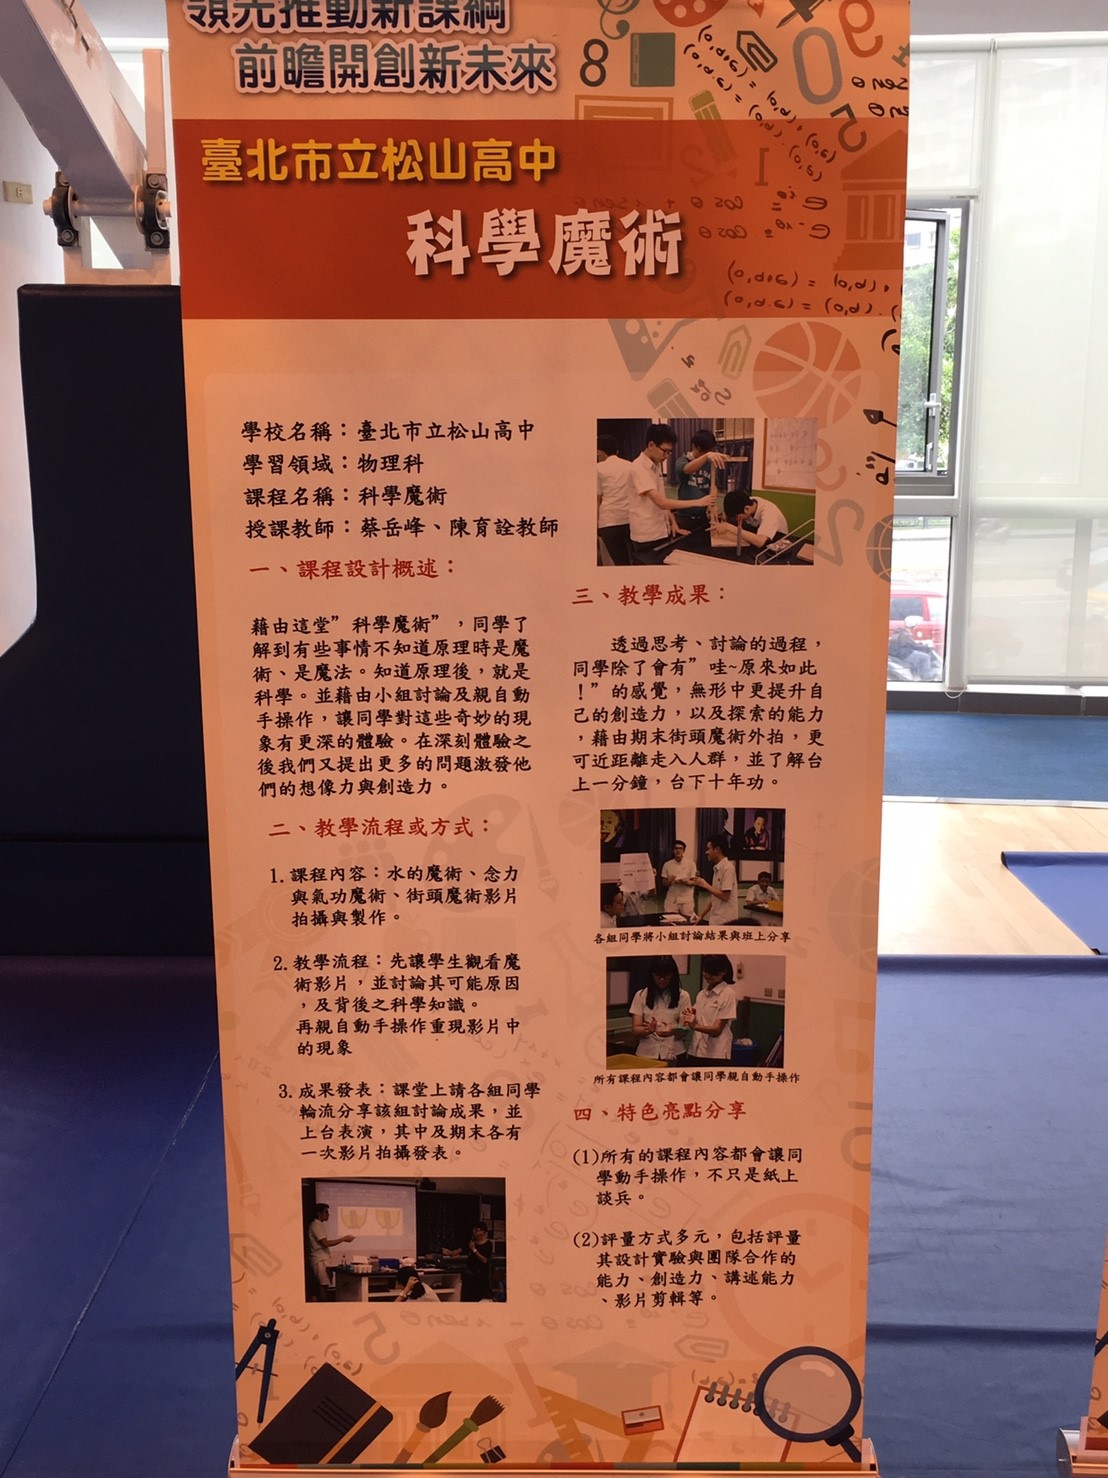 領先推動新課綱
前瞻開創新未來
臺北市立松山高中
科學魔術
學校名稱：臺北市立松山高中
學習領域：物理科
課程名稱：科學魔術
授課教師：蔡岳峰、陳育詮教師
一、課程設計概述：
藉由這堂”科學魔術”，同學了
解到有些事情不知道原理時是魔
術、是魔法。知道原理後，就是
科學。並藉由小組討論及親自動
手操作，讓同學對這些奇妙的現
象有更深的體驗。在深刻體驗之
後我們又提出更多的問題激發他
們的想像力與創造力。
二、教學流程或方式：
1.課程內容：水的魔術、念力
與氣功魔術、街頭魔術影片
拍攝與製作。
2.教學流程：先讓學生觀看魔
術影片，並討論其可能原因
，及背後之科學知識。
再親自動手操作重現影片中
的現象
3.成果發表：課堂上請各組同學
輪流分享該組討論成果，並
上台表演，其中及期末各有
一次影片拍攝發表。
三、教學成果：
透過思考、討論的過程，
同學除了會有”哇~原來如此
！”的感覺，無形中更提升自
己的創造力，以及探索的能力
，藉由期末街頭魔術外拍，更
可近距離走入人群，並了解台
上一分鐘，台下十年功。
各組同學將小組討論結果與班上分享
所有課程內容都會讓同學親自動手操作
四、特色亮點分享
(1)所有的課程內容都會讓同
學動手操作，不只是紙上
談兵。
(2)評量方式多元，包括評量
其設計實驗與團隊合作的
能力、創造力、講述能力
、影片剪輯等。